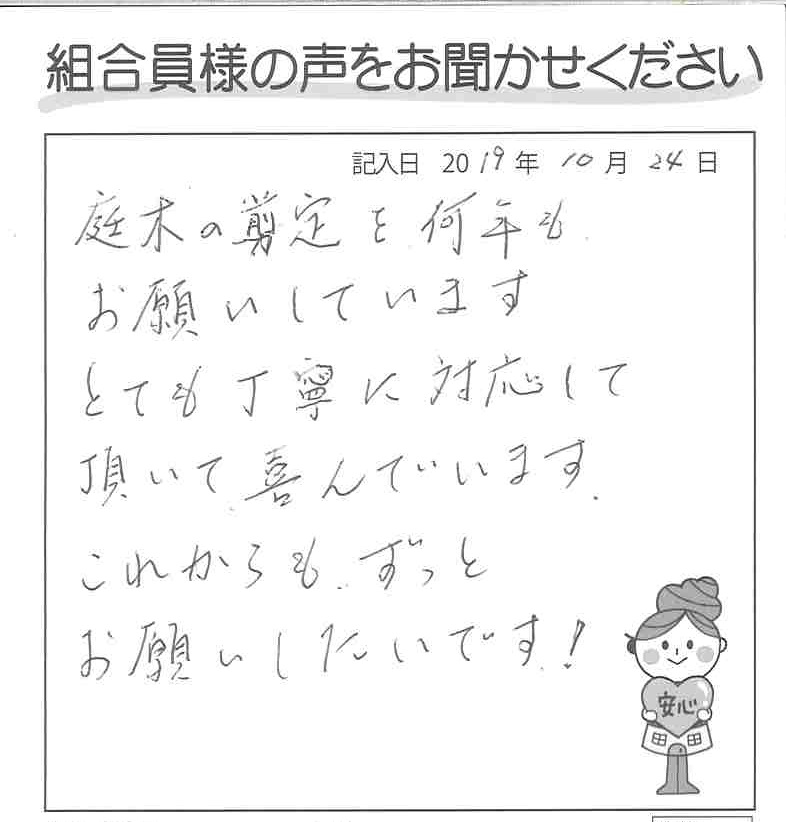 組合員様の声をお聞かせください
記入日 2019年 10月 24日
庭木の剪定を何年も
お願いしています
とても丁寧に対応して
頂いて喜んでいます.
これからも.ずっと
お願いしたいです!
安心